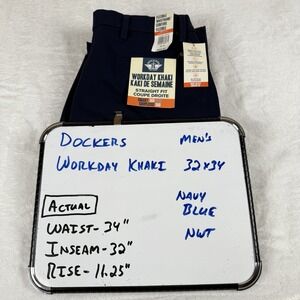 WORKDAY KHAKI
KAKI DE SEMAINE
STRAIGHT FIT
COUPE DROITE
DOCKERS MEN'S
WORKDAY KHAKI 32x34
NAVY
BLUE
NWT
ACTUAL
WAIST-34"
INSEAM-32"
RISE-11.25"